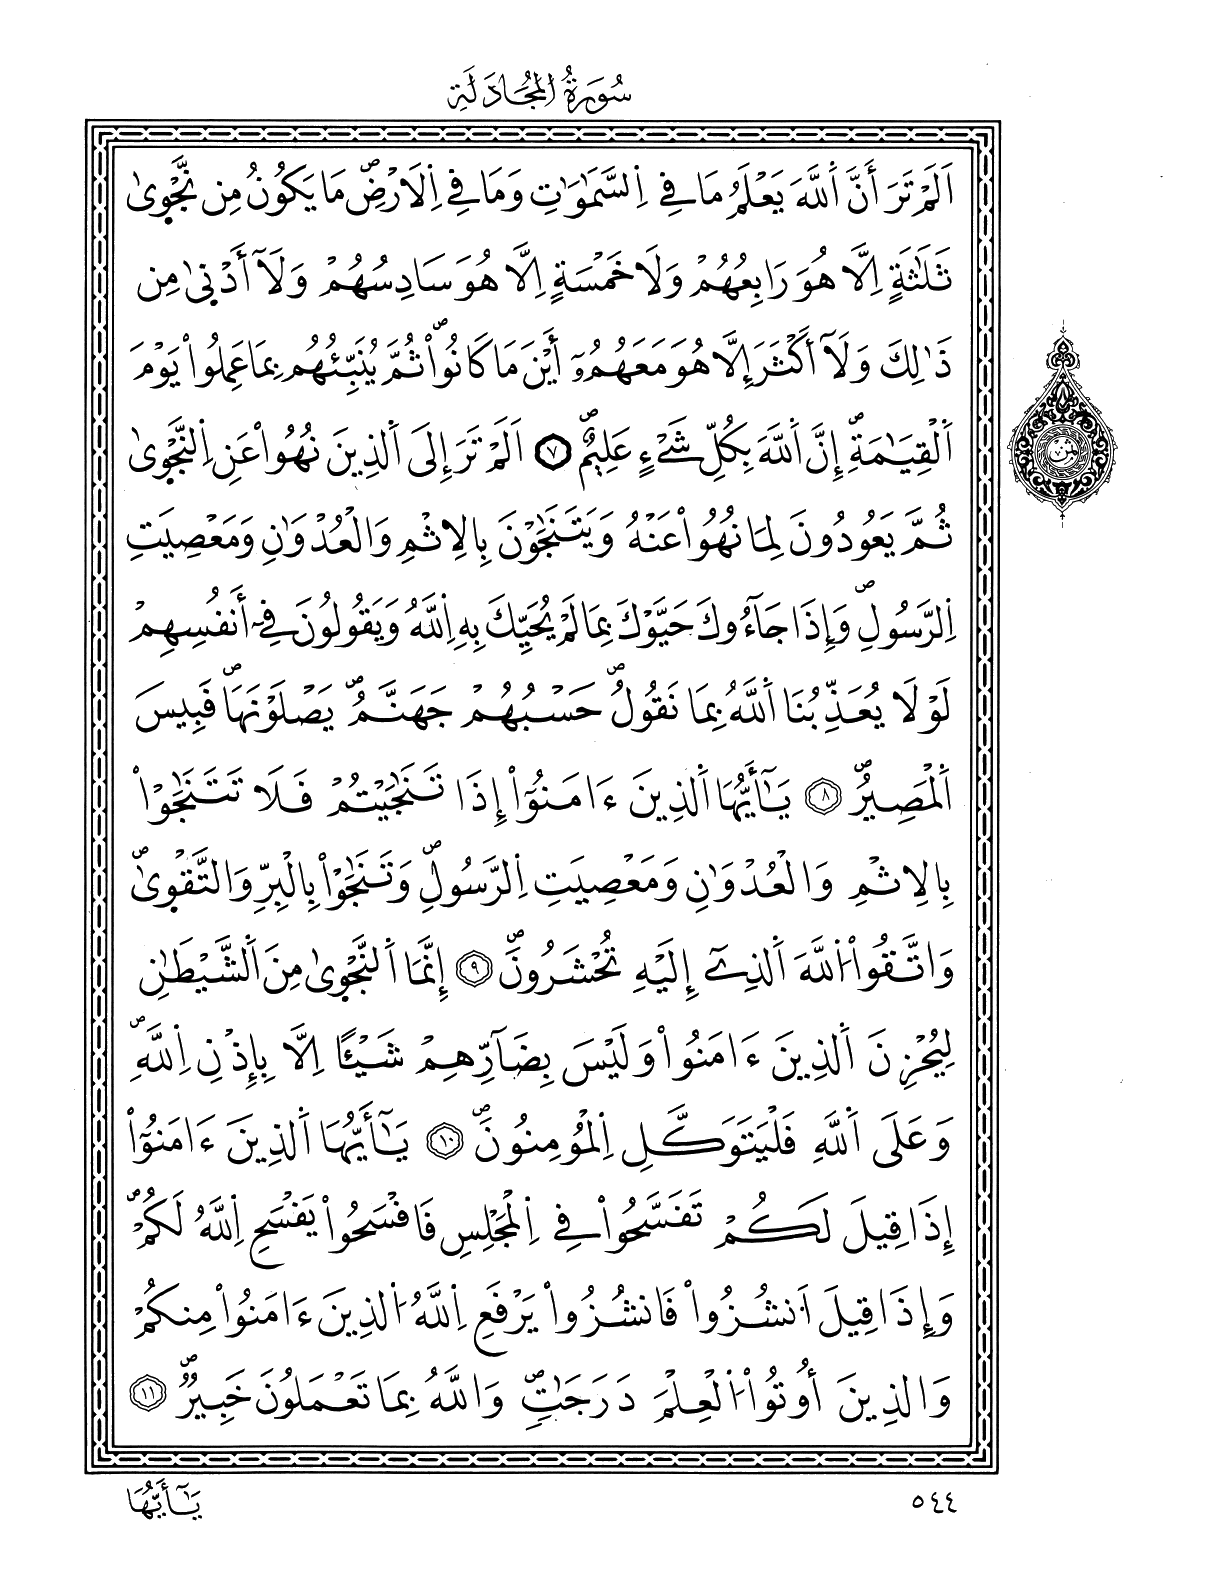 سُورَةُ الْمُجَادَلَةِ
اَلَمْ تَرَ أَنَّ اَللَّهَ يَعْلَمُ مَا فِي اِلسَّمَٰوَٰتِ وَمَا فِي اِلَارْضِۖ مَا يَكُونُ مِن نَّجْو۪يٰ
ثَلَٰثَةٍ اِلَّا هُوَ رَابِعُهُمْ وَلَا خَمْسَةٍ اِلَّا هُوَ سَادِسُهُمْ وَلَآ أَدْن۪يٰ مِن
ذَٰلِكَ وَلَآ أَكْثَرَ إِلَّا هُوَ مَعَهُمُۥٓ أَيْنَ مَا كَانُواْۖ ثُمَّ يُنَبِّئُهُم بِمَا عَمِلُواْ يَوْمَ
اَلْقِيَٰمَةِۖ إِنَّ اَللَّهَ بِكُلِّ شَےْءٍ عَلِيمٌۖ ٧ اَلَمْ تَرَ إِلَى اَلذِينَ نُهُواْ عَنِ اِلنَّجْو۪يٰ
ثُمَّ يَعُودُونَ لِمَا نُهُواْ عَنْهُ وَيَتَنَٰجَوْنَ بِالِاثْمِ وَالْعُدْوَٰنِ وَمَعْصِيَتِ
اِلرَّسُولِۖ وَإِذَا جَآءُوكَ حَيَّوْكَ بِمَا لَمْ يُحَيِّكَ بِهِ اِللَّهُ وَيَقُولُونَ فِےٓ أَنفُسِهِمْ
لَوْلَا يُعَذِّبُنَا اَللَّهُ بِمَا نَقُولُۖ حَسْبُهُمْ جَهَنَّمُۖ يَصْلَوْنَهَاۖ فَبِيسَ
اَلْمَصِيرُۖ ٨ يَٰٓأَيُّهَا اَلذِينَ ءَامَنُوٓاْ إِذَا تَنَٰجَيْتُمْ فَلَا تَتَنَٰجَوْاْ
بِالِاثْمِ وَالْعُدْوَٰنِ وَمَعْصِيَتِ اِلرَّسُولِۖ وَتَنَٰجَوْاْ بِالْبِرِّ وَالتَّقْو۪يٰۖ
وَاتَّقُواْ اُللَّهَ اَلذِےٓ إِلَيْهِ تُحْشَرُونَۖ ٩ إِنَّمَا اَلنَّجْو۪يٰ مِنَ اَلشَّيْطَٰنِ
لِيُحْزِنَ اَلذِينَ ءَامَنُواْ وَلَيْسَ بِضَآرِّهِمْ شَيْـًٔا اِلَّا بِإِذْنِ اِللَّهِۖ
وَعَلَى اَللَّهِ فَلْيَتَوَكَّلِ اِلْمُؤْمِنُونَۖ ١٠ يَٰٓأَيُّهَا اَلذِينَ ءَامَنُوٓاْ
إِذَا قِيلَ لَكُمْ تَفَسَّحُواْ فِي اِلْمَجْلِسِ فَافْسَحُواْ يَفْسَحِ اِللَّهُ لَكُمْۖ
وَإِذَا قِيلَ اَنشُزُواْ فَانشُزُواْ يَرْفَعِ اِللَّهُ اُلذِينَ ءَامَنُواْ مِنكُمْ
وَالذِينَ أُوتُواْ اُلْعِلْمَ دَرَجَٰتٍۖ وَاللَّهُ بِمَا تَعْمَلُونَ خَبِيرٌۖ ١١
٥٤٤
يَٰٓأَيُّهَا